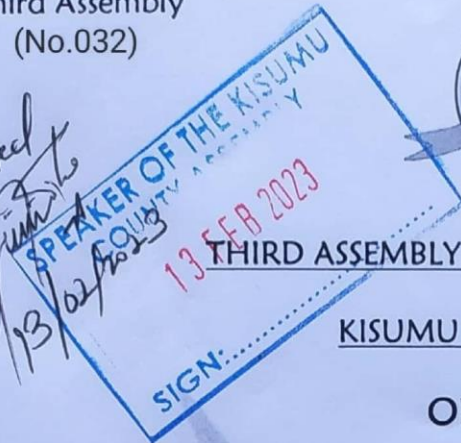 Third Assembly
(No.032)
SPEAKER OF THE KISUMU
COUNTY ASSEMBLY
13 FEB 2023
SIGN:....................
13/02/2023
THIRD ASSEMBLY
KISUMU
O